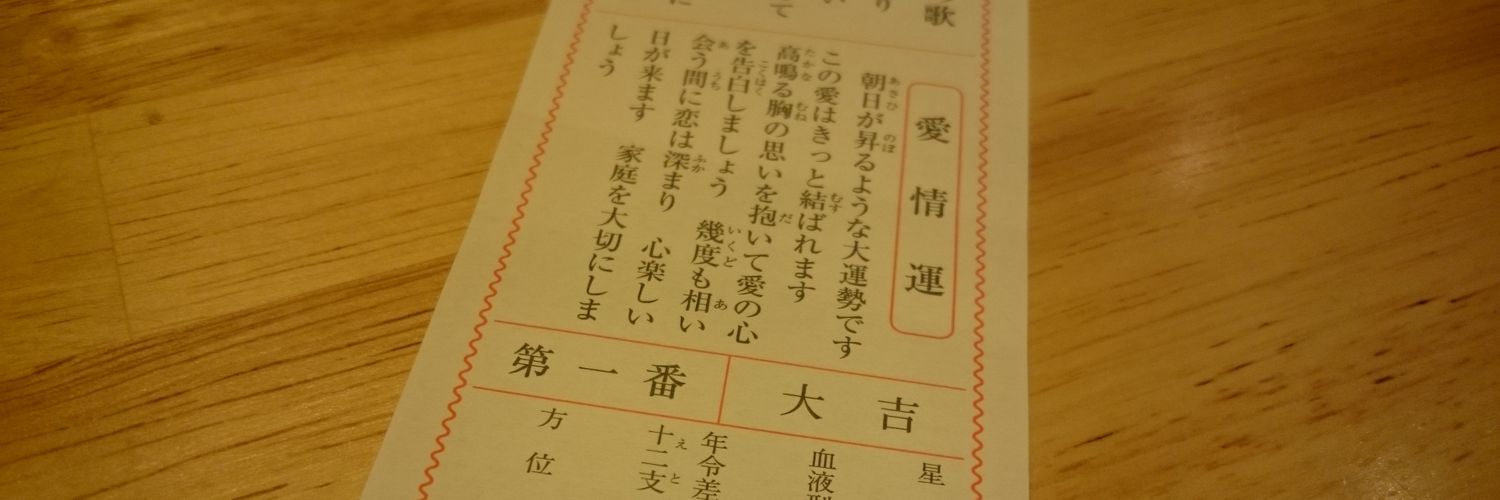 歌
り
い
て
に
愛情運
朝日が昇るような大運勢です
この愛はきっと結ばれます
高鳴る胸の思いを抱いて愛の心
を告白しましょう 幾度も相い
会う間に恋は深まり 心楽しい
日が来ます 家庭を大切にしま
しょう
第一番
大吉
星
血液型
年令差
十二支
方位